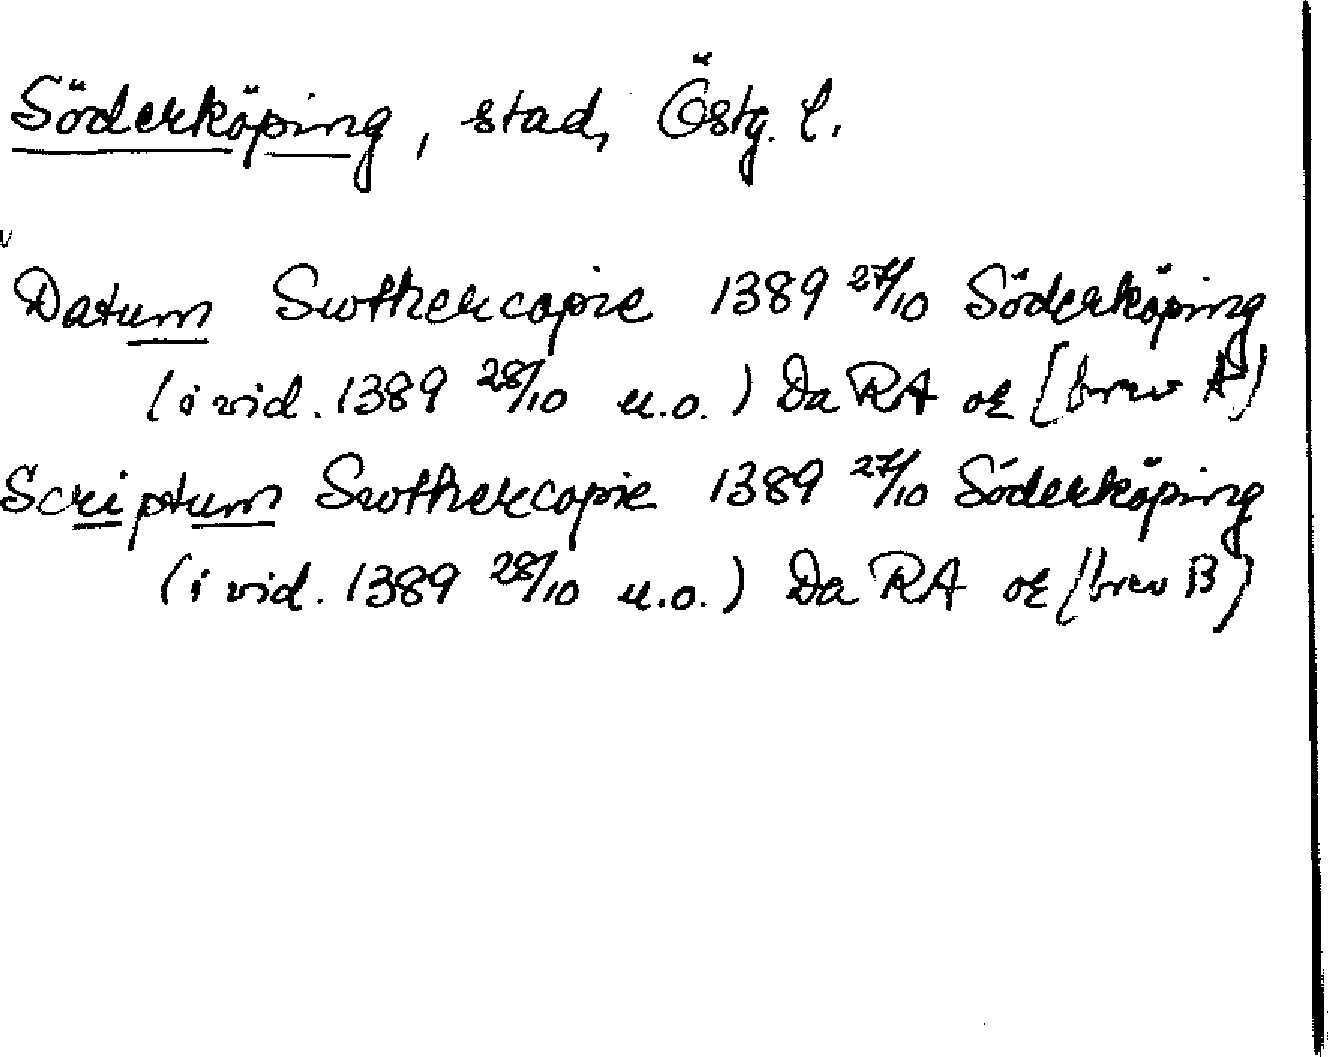 Söderköping, stad, Östg. l.
Datum Swthercopie 1389 27/10 Söderköping
(i vid. 1389 28/10 u.o.) Da RA or (brev A)
Scriptum Swthercopie 1389 27/10 Söderköping
(i vid. 1389 28/10 u.o.) Da RA or (brev B)